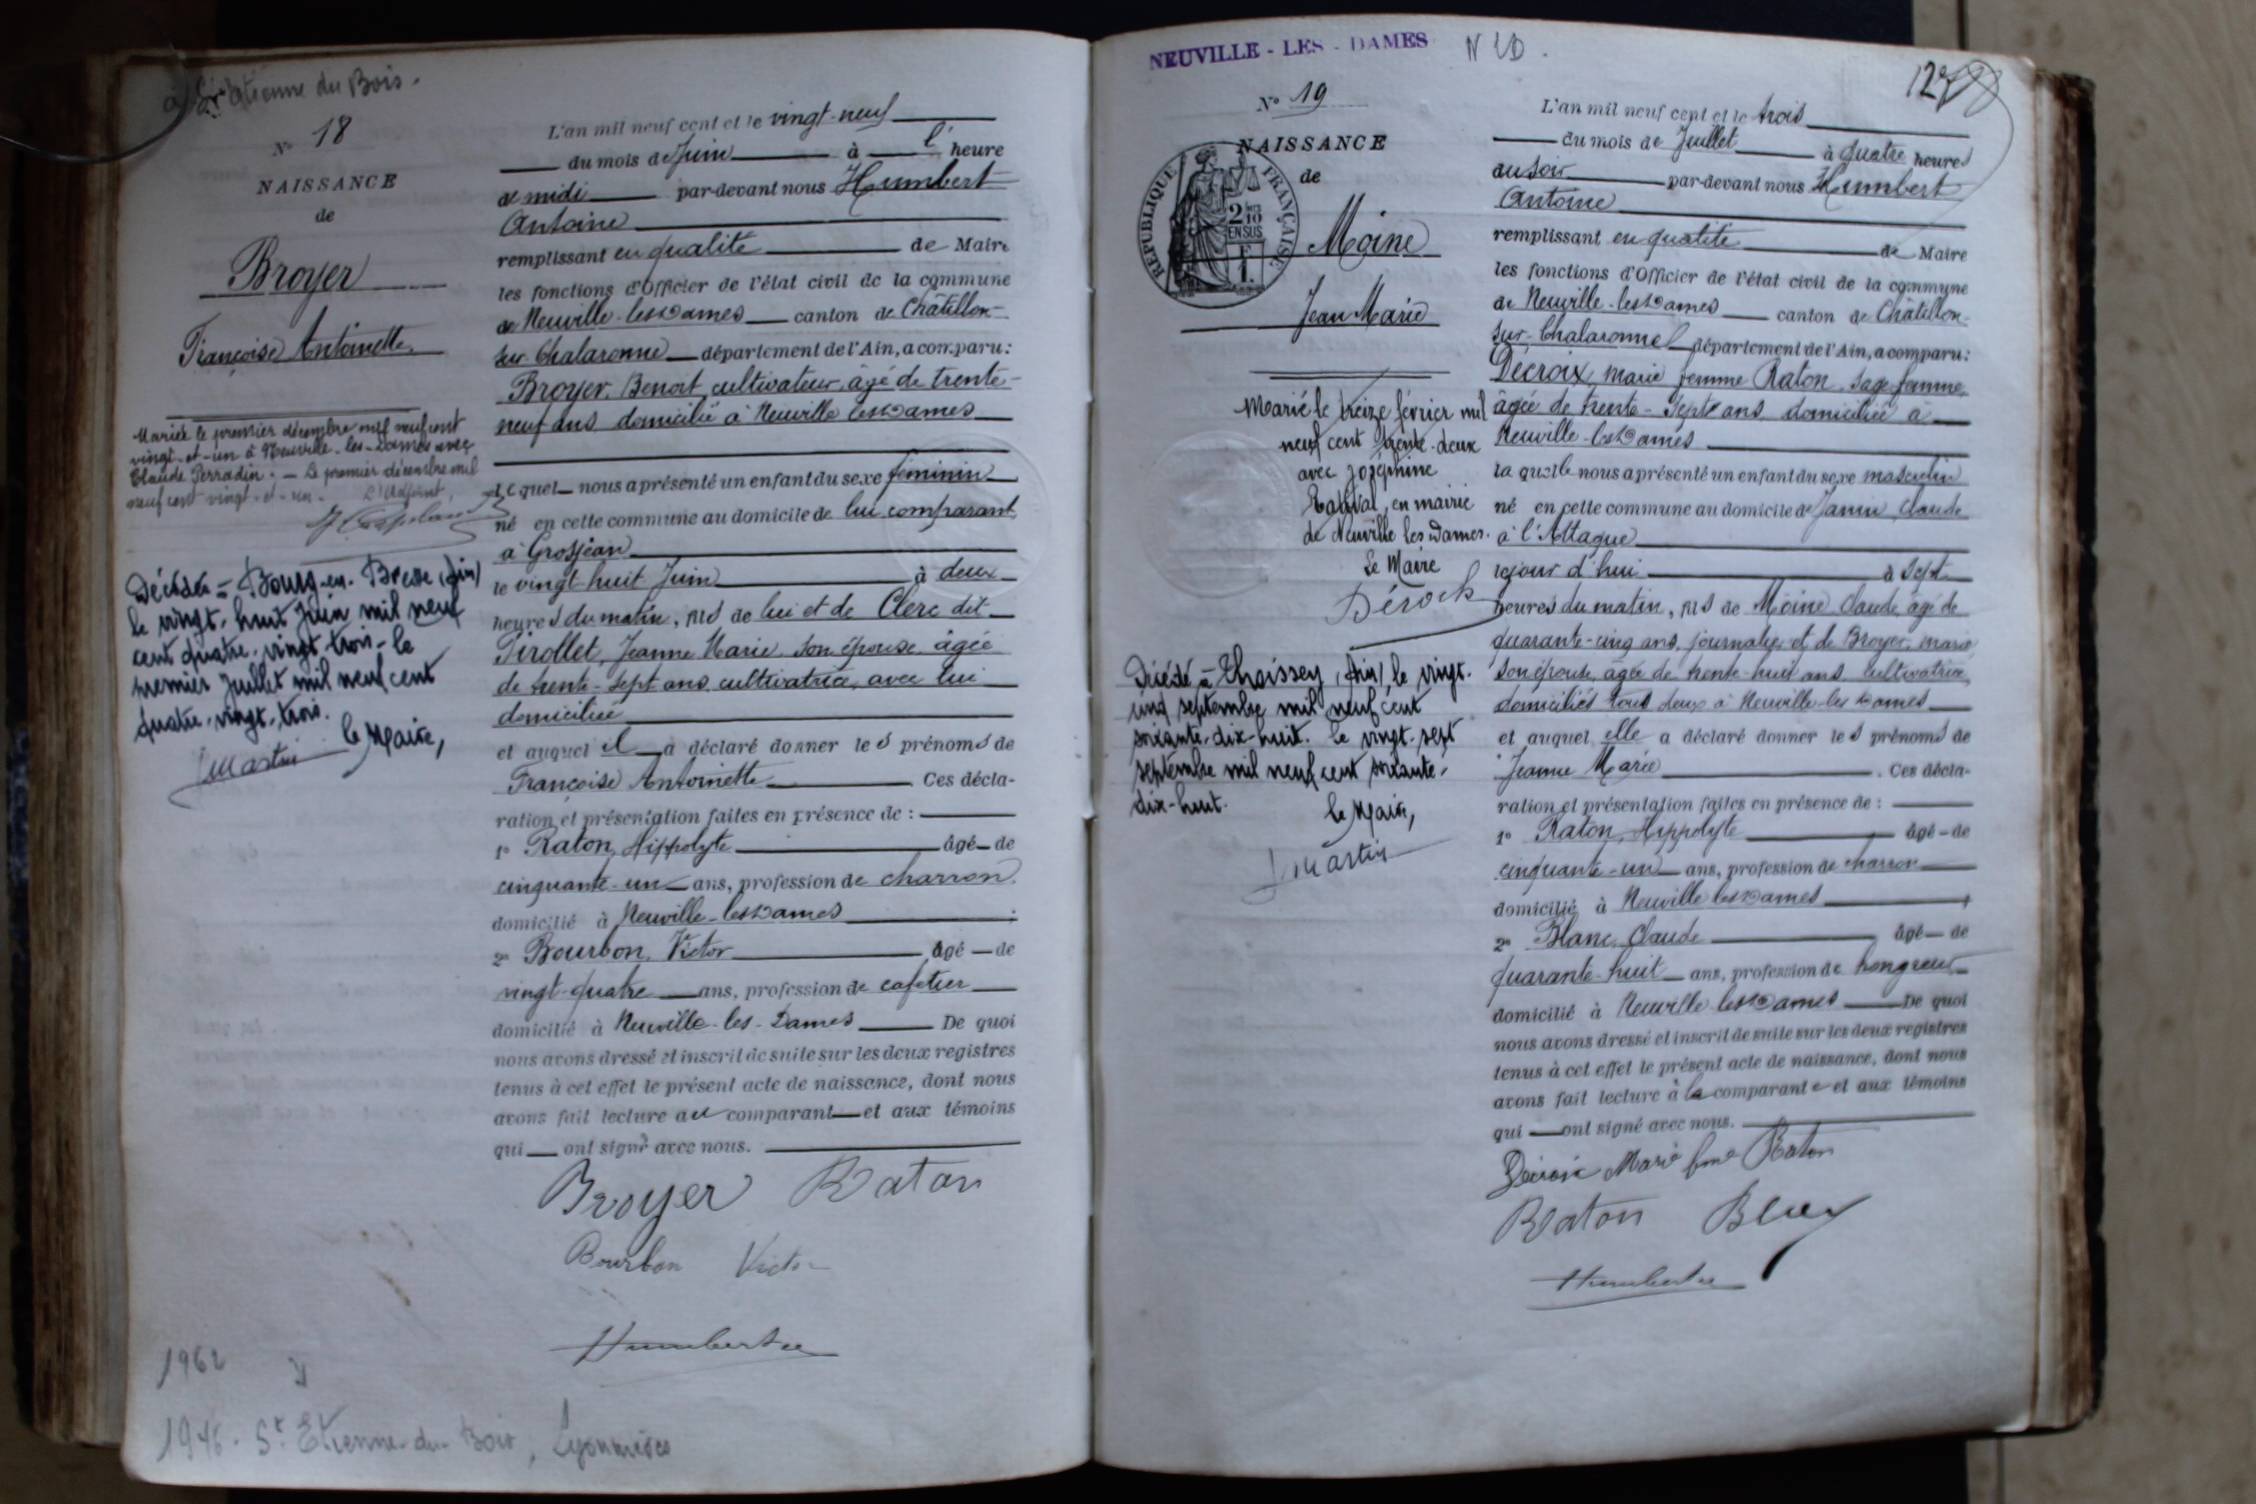 à St Etienne du Bois.
N° 18
NAISSANCE
de
Broyer
Françoise Antoinette
Mariée le premier décembre mil neuf cent
vingt-et-un à Neuville-les-Dames avec
Claude Perradin. — Le premier décembre mil
neuf cent vingt-et-un. L'adjoint,
Décédée à Bourg-en-Bresse (Ain)
le vingt-huit juin mil neuf
cent quatre-vingt-trois - le
premier juillet mil neuf cent
quatre-vingt-trois.
le Maire,
J Martin
L'an mil neuf cent et le vingt-neuf
du mois de Juin à l' heure
de midi par-devant nous Humbert
Antoine
remplissant en qualité de Maire
les fonctions d'Officier de l'état civil de la commune
de Neuville-les-Dames canton de Châtillon-
sur-Chalaronne département de l'Ain, a comparu:
Broyer, Benoit, cultivateur, âgé de trente-
neuf ans domicilié à Neuville les Dames
lequel nous a présenté un enfant du sexe féminin
né en cette commune au domicile de lui comparant
à Grosjean
le vingt-huit Juin à deux
heures du matin, fils de lui et de Clerc dit
Pirollet, Jeanne Marie, son épouse, âgée
de trente-sept ans, cultivatrice, avec lui
domiciliée
et auquel il a déclaré donner les prénoms de
Françoise Antoinette Ces décla-
ration et présentation faites en présence de :
1° Raton, Hippolyte âgé de
cinquante-un ans, profession de charron
domicilié à Neuville-les-Dames ;
2° Bourbon, Victor âgé de
vingt-quatre ans, profession de cafetier
domicilié à Neuville-les-Dames De quoi
nous avons dressé et inscrit de suite sur les deux registres
tenus à cet effet le présent acte de naissance, dont nous
avons fait lecture au comparant et aux témoins
qui ont signé avec nous.
Broyer Raton
Bourbon Victor
Humbert
1962
1946. St Etienne-du-Bois, Lyonnières
NEUVILLE - LES - DAMES N L D.
N° 19
NAISSANCE
de
RÉPUBLIQUE FRANÇAISE
2/10 EN SUS
F 1.
Moine
Jean Marie
Marié le treize février mil
neuf cent trente-deux
avec Joséphine
en mairie
de Neuville les Dames.
Le Maire
Décédé à Thoissey, (Ain), le vingt-
cinq septembre mil neuf cent
soixante-dix-huit. le vingt-sept
septembre mil neuf cent soixante-
dix-huit.
le Maire,
J Martin
L'an mil neuf cent et le trois
du mois de Juillet à quatre heures
du soir par-devant nous Humbert
Antoine
remplissant en qualité de Maire
les fonctions d'Officier de l'état civil de la commune
de Neuville-les-Dames canton de Châtillon-
sur-Chalaronne département de l'Ain, a comparu:
Décroix, Marie femme Raton, sage-femme,
âgée de trente-sept ans domiciliée à
Neuville-les-Dames
laquelle nous a présenté un enfant du sexe masculin
né en cette commune au domicile de Janin, Claude
à l'Attaque
lejour d'hui à sept
heures du matin, fils de Moine Claude, âgé de
quarante-cinq ans, journalier et de Broyer, Marie
son épouse, âgée de trente-huit ans cultivatrice,
domiciliés tous deux à Neuville-les-Dames
et auquel elle a déclaré donner les prénoms de
Jeanne Marie . Ces décla-
ration et présentation faites en présence de :
1° Raton, Hippolyte âgé de
cinquante-un ans, profession de charron
domicilié à Neuville les Dames ;
2° Blanc, Claude âgé de
quarante-huit ans, profession de hongreur
domicilié à Neuville les Dames De quoi
nous avons dressé et inscrit de suite sur les deux registres
tenus à cet effet le présent acte de naissance, dont nous
avons fait lecture à la comparante et aux témoins
qui ont signé avec nous.
Décroix Marie fme Raton
Raton
Humbert